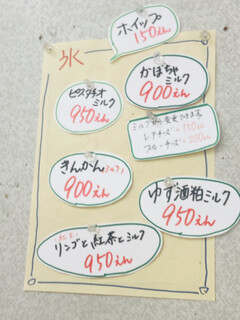 ホイップ
150えん
氷
ピスタチオ
ミルク
950えん
かぼちゃ
ミルク
900えん
ミルク
変更できます
レアチーズ
ブルーチーズ
きんかんミルク
900えん
ゆず酒粕ミルク
950えん
リンゴと紅茶とミルク
950えん